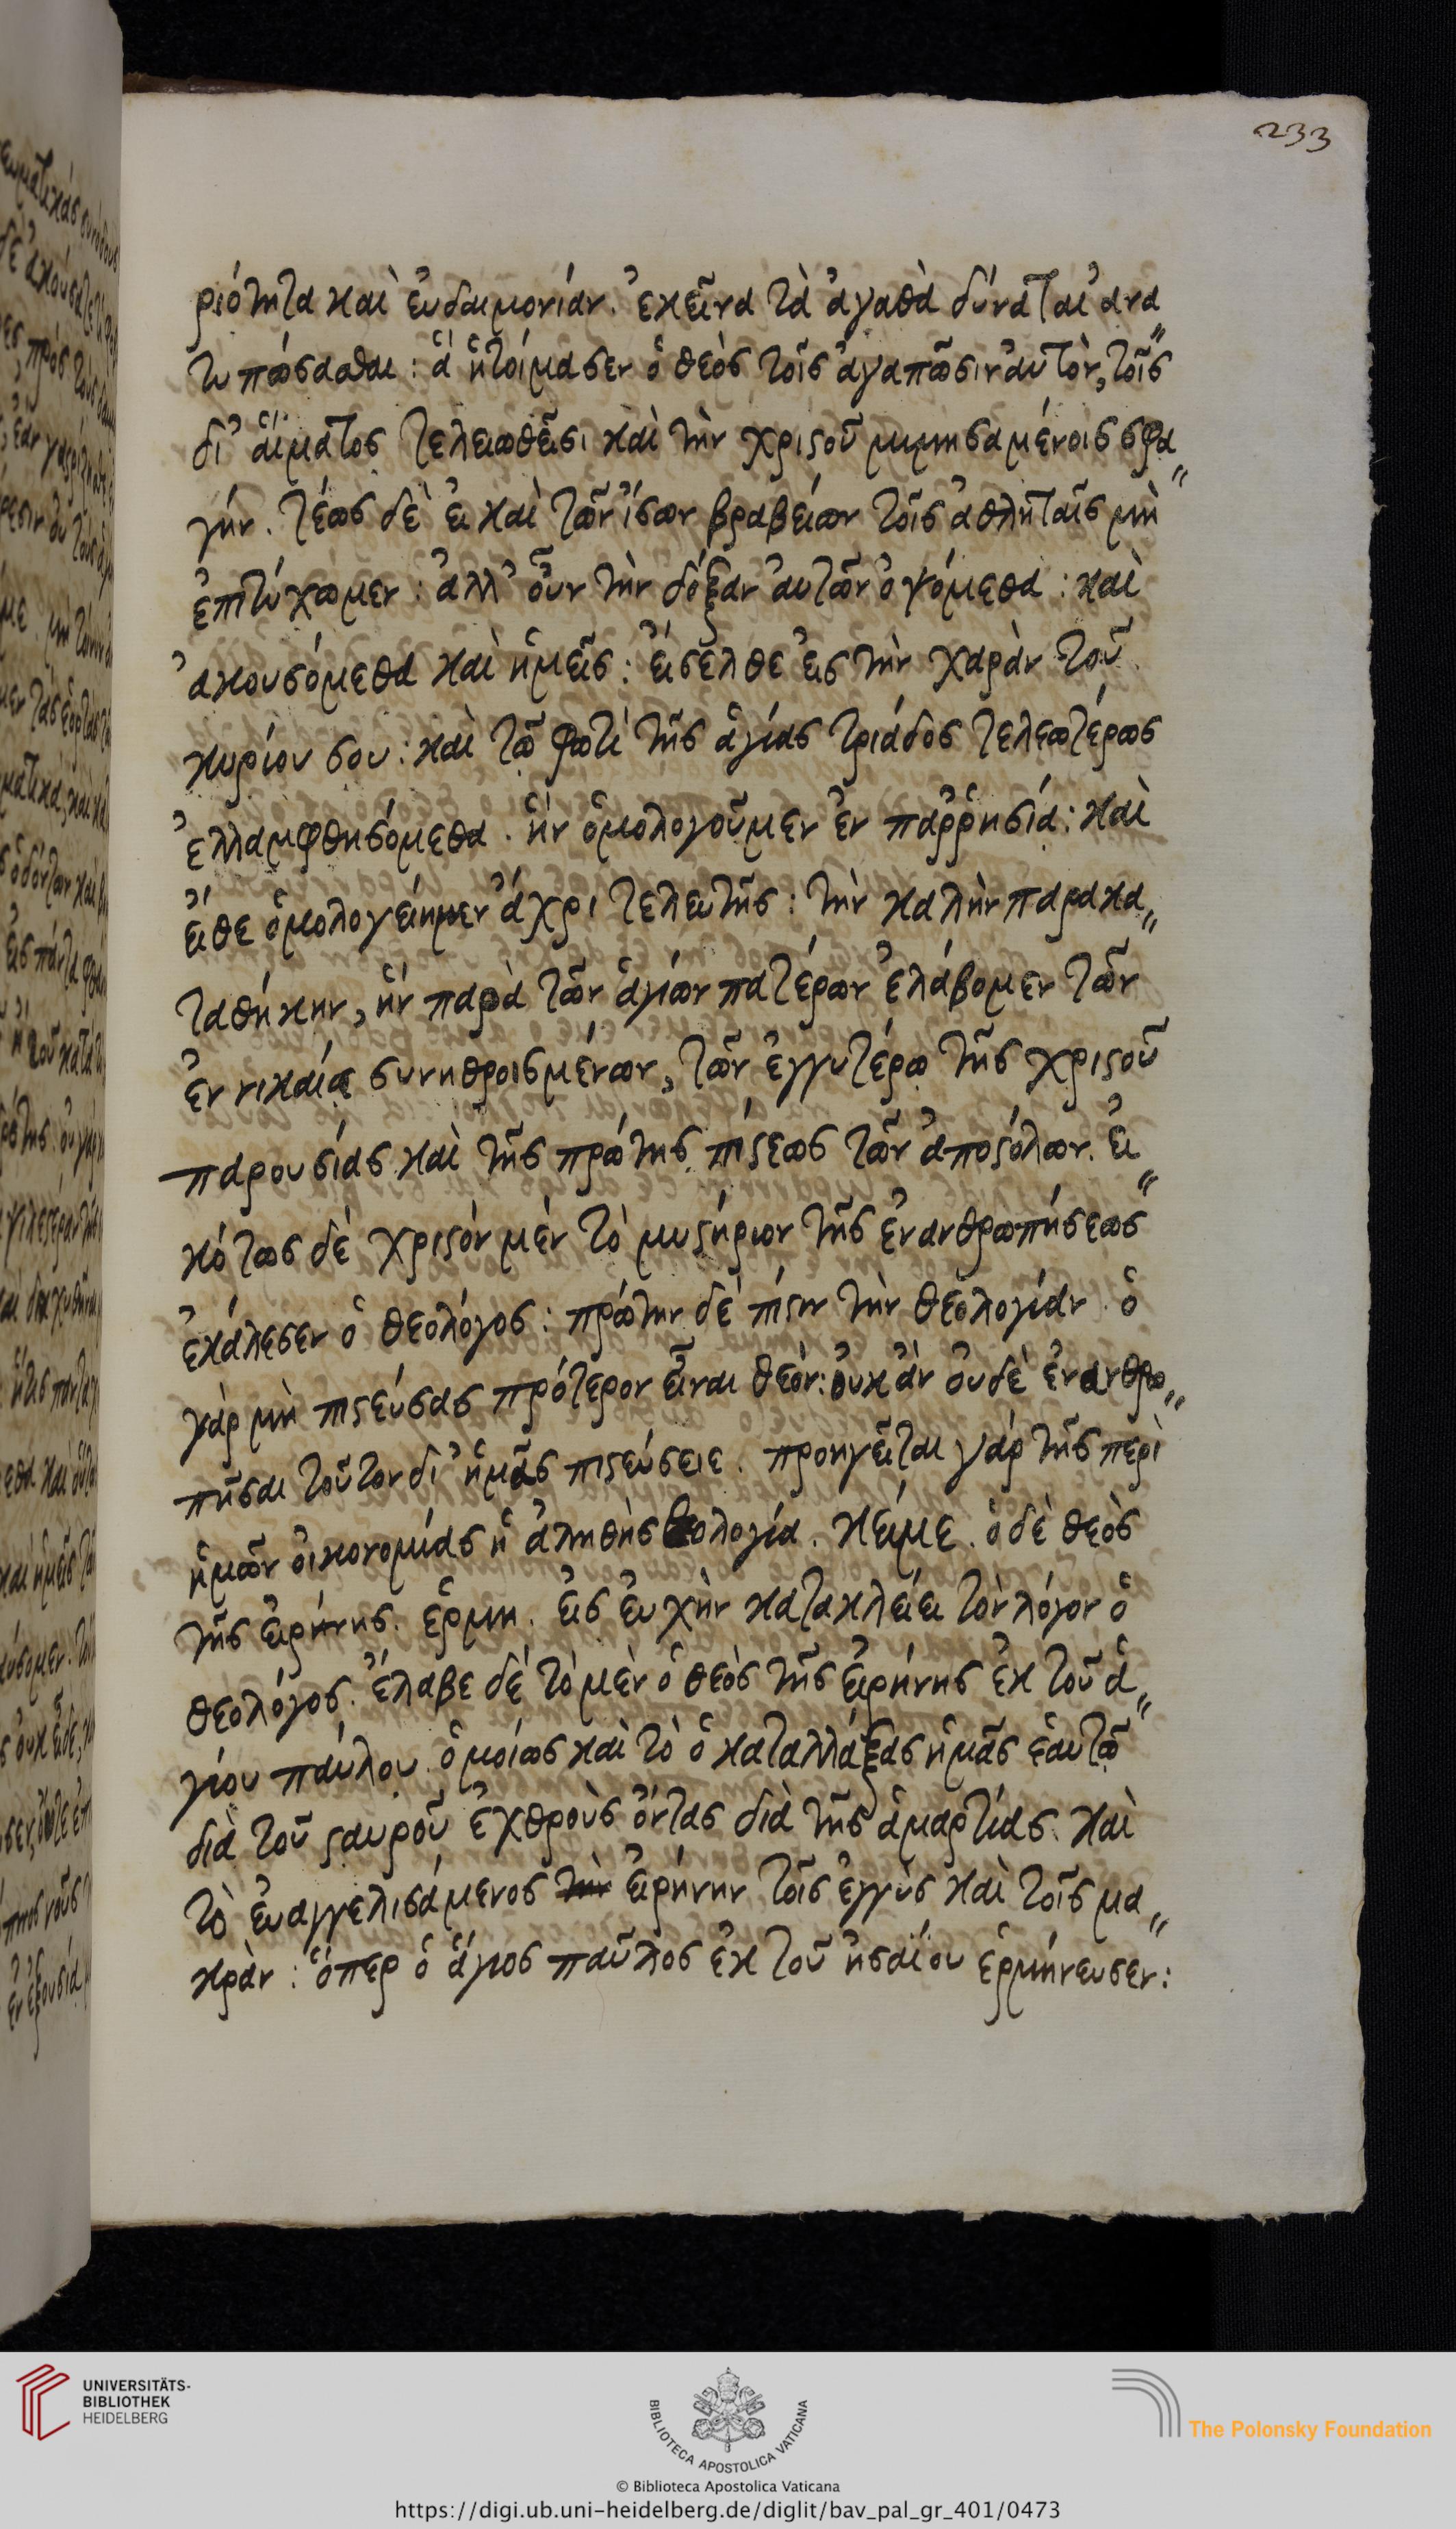 233
ριότητα καὶ ἐυδαιμονίαν. ἐκεῖνα τὰ ἀγαθὰ δύναται ἀνα
τυπώσασθαι: ἃ ἡτοίμασεν ὁ θεὸς τοῖς ἀγαπῶσιν ἀυτὸν, τοῖς
δι᾽ ἅιματος τελειωθεῖσι καὶ τὴν χριστοῦ μιμησαμένοις σφα
γήν. τέως δὲ ἐι καὶ τῶν ἴσων βραβείων τοῖς ἀθληταῖς μὴ
ἐπιτύχωμεν: ἀλλ᾽ οὖν τὴν δόξαν ἀυτῶν ὀψόμεθα: καὶ
ἀκουσόμεθα καὶ ἡμεῖς: ἔισελθε ἐις τὴν χαρὰν τοῦ
κυρίου σου: καὶ τῷ φωτὶ τῆς ἁγίας τριάδος τελεωτέρως
ἐλλαμφθησόμεθα. ἣν ὁμολογοῦμεν ἐν παῤῥησίᾳ: καὶ
ἔιθε ὁμολογείημεν ἄχρι τελευτῆς: τὴν καλὴν παρακα
ταθήκην, ἣν παρὰ τῶν ἁγίων πατέρων ἐλάβομεν τῶν
ἐν νικαίᾳ συνηθροισμένων, τῶν ἐγγυτέρω τῆς χριστοῦ
παρουσίας καὶ τῆς πρώτης πίστεως τῶν ἀποστόλων. ἐι
κότως δὲ χριστὸν μὲν τὸ μυστήριον τῆς ἐνανθρωπήσεως
ἐκάλεσεν ὁ θεολόγος: πρώτην δὲ πίστιν τὴν θεολογίαν. ὁ
γὰρ μὴ πιστεύσας πρότερον εἶναι θεόν: ὀυκ ἂν ὀυδὲ ἐνανθρω
πῆσαι τοῦτον δι᾽ ἡμᾶς πιστεύσειε. προηγεῖται γὰρ τῆς περὶ
ἡμῶν ὀικονομίας ἡ ἀληθὴς θεολογία. κείμε. ὁ δὲ θεὸς
τῆς ἐιρήνης. ἑρμη. ἐις ἐυχὴν κατακλείει τὸν λόγον ὁ
θεολόγος. ἔλαβε δὲ τὸ μὲν ὁ θεὸς τῆς ἐιρήνης ἐκ τοῦ ἁ
γίου παύλου. ὁμοίως καὶ τὸ ὁ καταλλάξας ἡμᾶς ἑαυτῷ
διὰ τοῦ σταυροῦ ἐχθροὺς ὄντας διὰ τῆς ἁμαρτίας. καὶ
τὸ ἐυαγγελισάμενος τὴν ἐιρήνην τοῖς ἐγγὺς καὶ τοῖς μα
κράν: ὅπερ ὁ ἅγιος παῦλος ἐκ τοῦ ἠσαΐου ἑρμήνευσεν:
UNIVERSITÄTS-
BIBLIOTHEK
HEIDELBERG
BIBLIOTECA APOSTOLICA VATICANA
The Polonsky Foundation
© Biblioteca Apostolica Vaticana
https://digi.ub.uni-heidelberg.de/diglit/bav_pal_gr_401/0473